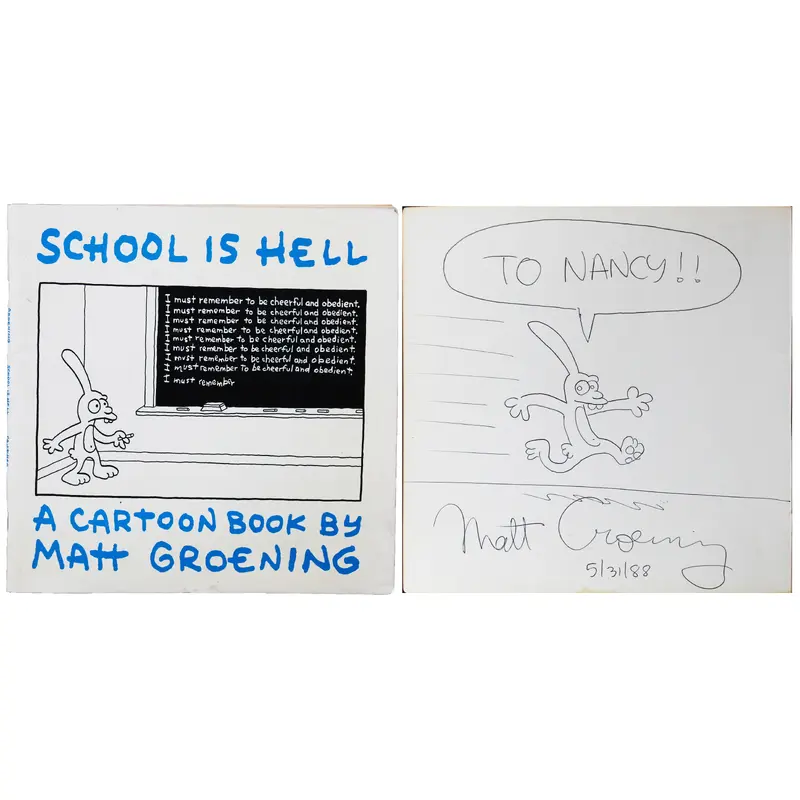 SCHOOL IS HELL
I must remember to be cheerful and obedient.
I must remember to be cheerful and obedient.
I must remember to be cheerful and obedient.
I must remember to be cheerful and obedient.
I must remember to be cheerful and obedient.
I must remember to be cheerful and obedient.
I must remember to be cheerful and obedient.
I must remember To be cheerful and obedient.
I must remember
A CARTOON BOOK BY
MATT GROENING
GROENING SCHOOL IS HELL
TO NANCY!!
Matt Groening
5/31/88